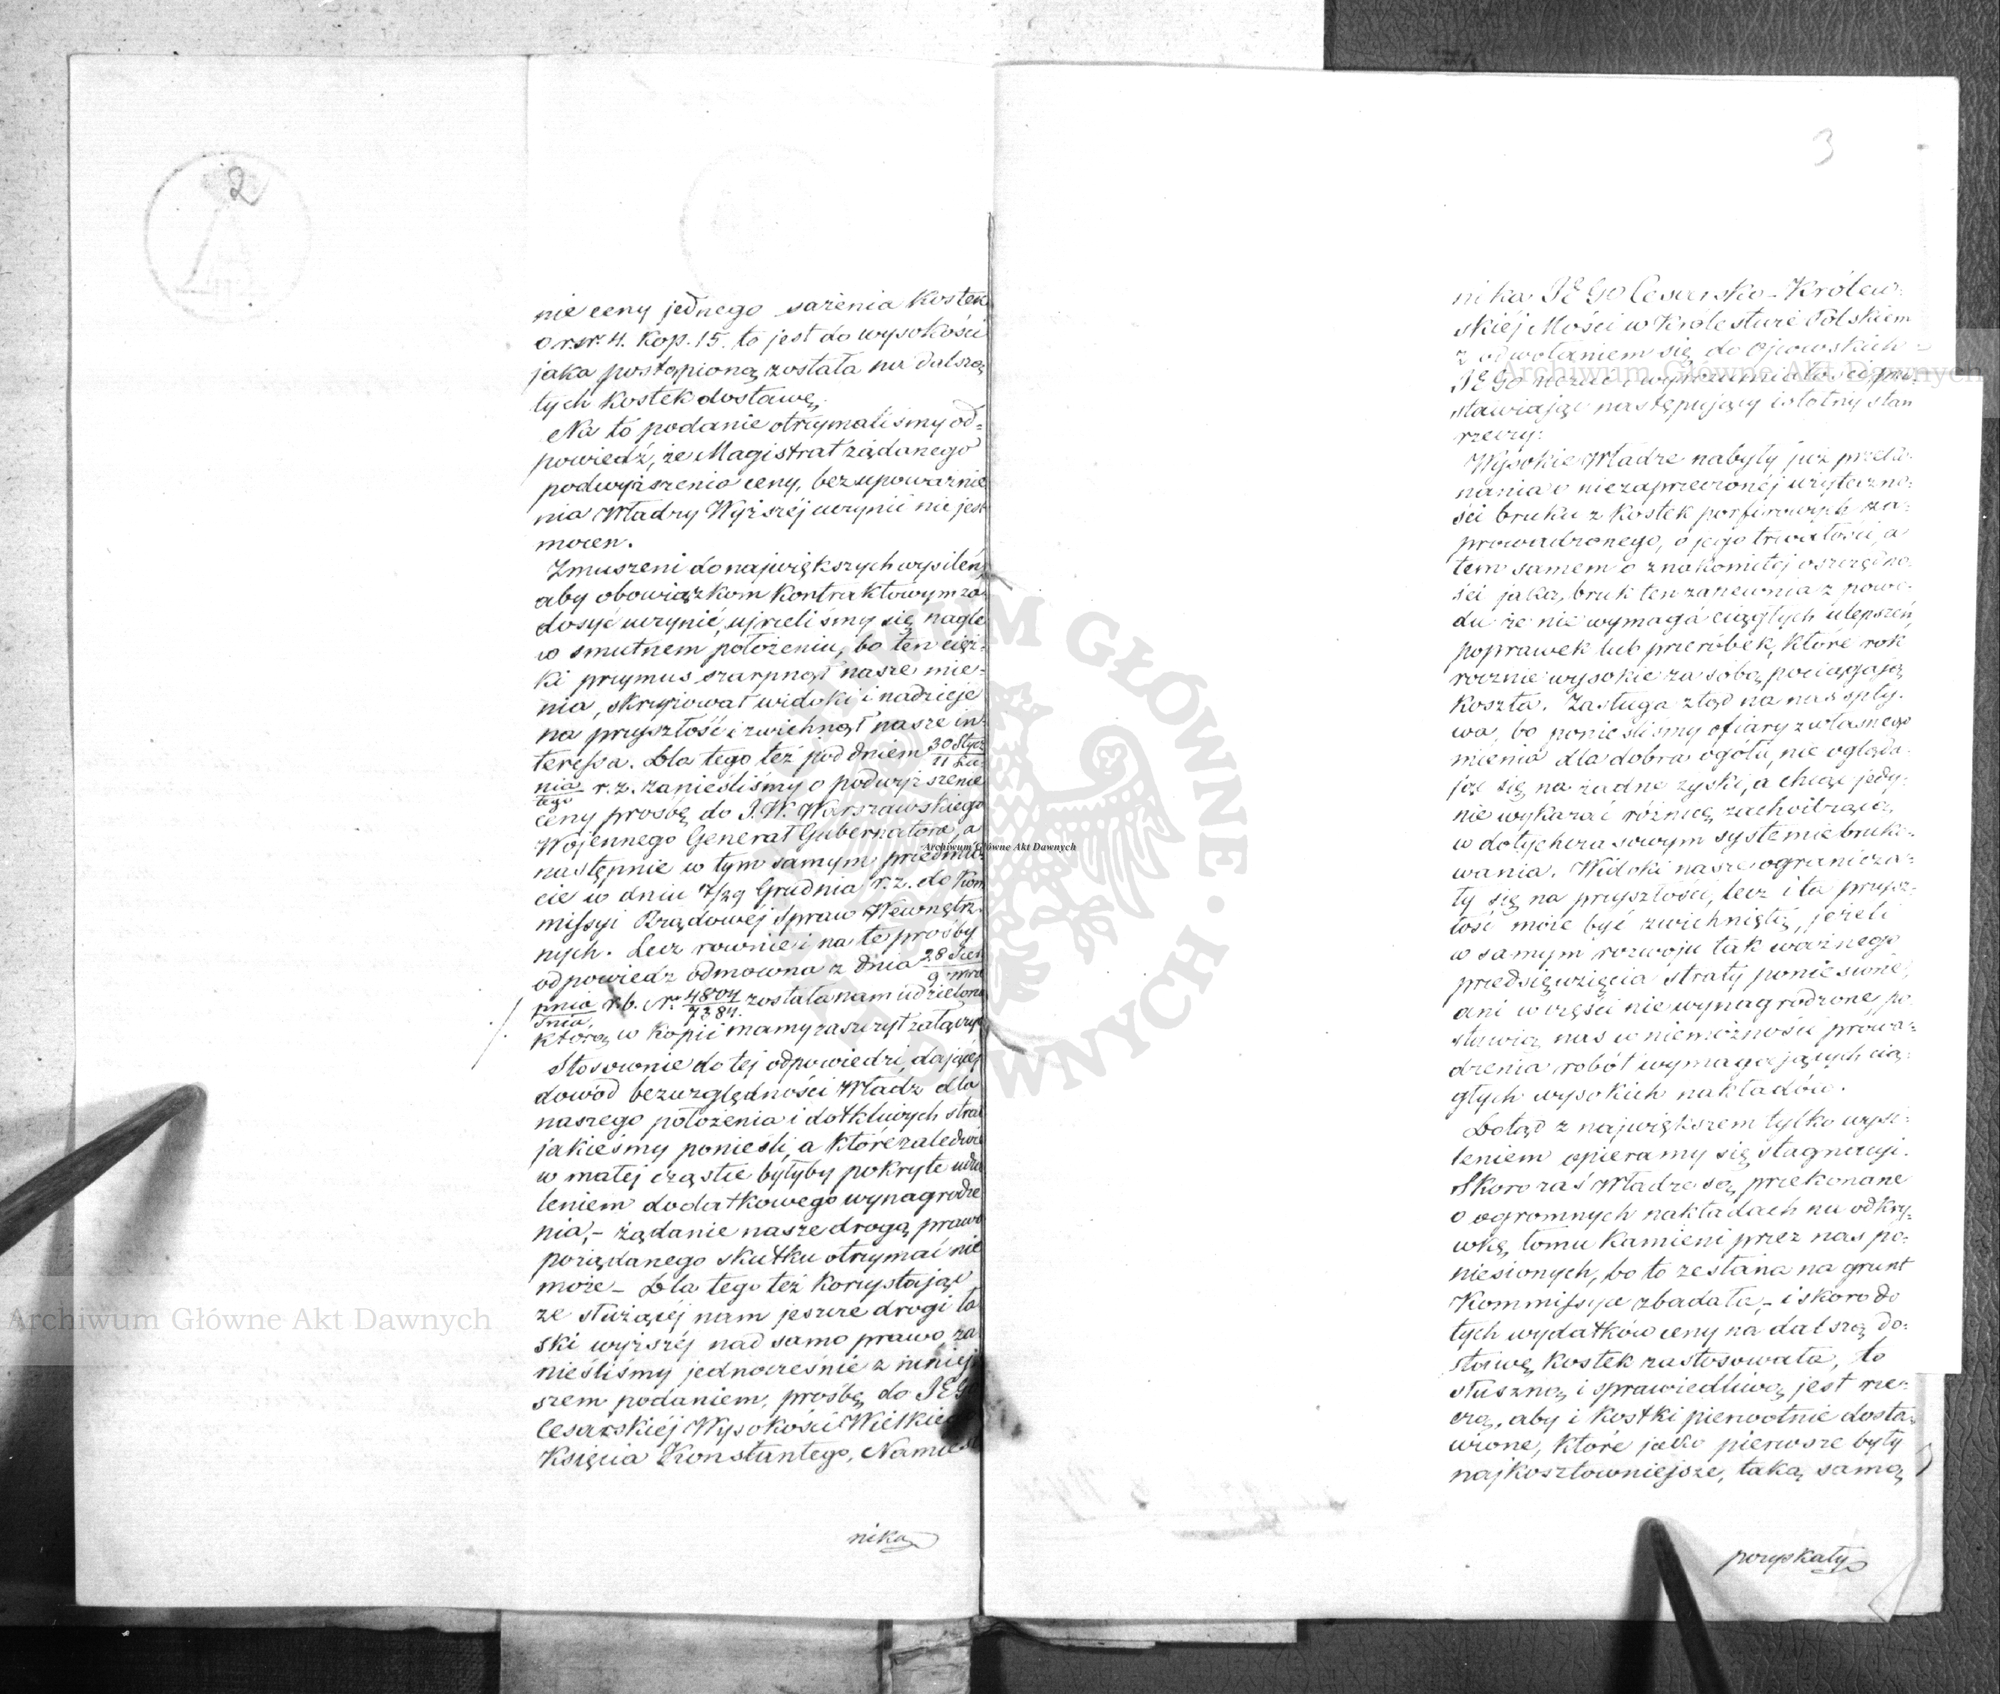 2
nie ceny jednego sążenia Kostek
o rsr. 4. Kop. 15. to jest do wysokości
jaka postąpioną została na dalszą
tych Kostek dostawę.
Na to podanie otrzymaliśmy od=
powiedź, że Magistrat żądanego
podwyższenia ceny, bez upoważnie
nia Władzy Wyższéj uczynić nie jest
mocen.
Zmuszeni do największych wysileń,
aby obowiązkom Kontraktowym za
dosyć uczynić, ujrzeliśmy się nagle
w smutnem położeniu, bo ten cięż=
ki przymus szarpnął nasze mie=
nia, skrzyżował widoki i nadzieje
na przyszłość i zwichnął nasze in=
teressa. Dla tego też pod dniem 30 Stycz
11 Lu=
nia r. z. zanieśliśmy o podwyższenie
tego
ceny prosbę do J. W. Warszawskiego
Wojennego Generał Gubernatora, a
następnie w tym samym przedmio
cie w dniu 7/29 Grudnia r. z. do Kom
missyi Rządowéj Spraw Wewnętrz
nych. Lecz rownie i na te prośby
odpowiedz odmowna z dnia 28 Sier
9 Wrz
pnia r. b. Nr 4804 została nam udzieloną
śnia 7384.
którą w Kopii mamy zaszczyt załączyć
Stosownie do tej odpowiedzi, dającéj
dowód bezwzględności Władz dla
naszego położenia i dotkliwych strat
jakieśmy ponieśli, a które zaledwie
w małej cząstce byłyby pokryte udzie
leniem dodatkowego wynagrodze
nia,- żądanie nasze drogą prawa
pożądanego skutku otrzymać nie
może - Dla tego też Korzystając
ze służącéj nam jeszcze drogi ła
ski wyższéj nad samo prawo za
nieśliśmy jednocześnie z niniej
szem podaniem, prośbę do JEGO
Cesarskiéj Wysokości Wielkiego
Księcia Konstantego, Namiest
nika
3
nika JEGO Cesarsko-Królew=
skiéj Mości w Królestwie Polskiem
z odwołaniem się do Ojcowskich
JEGO uczuć i wyrozumiałości przed
stawiając następujący istotny stan
rzeczy:
Wysokie Władze nabyły już przeko=
nania o niezaprzeczonéj użyteczno=
ści bruku z Kostek porfirowych za=
prowadzonego, o jego trwałości, a
tem samem o znakomitéj oszczędno=
ści jaką bruk ten zapewnia z powo=
du że nie wymaga ciągłych ulepszeń,
poprawek lub przeróbek, które rok
rocznie wysokie za sobą pociągają
koszta. Zasługa ztąd na nas spły=
wa, bo ponieśliśmy ofiary z własnego
mienia dla dobra ogółu, nie ogląda=
jąc się na żadne zyski, a chcąc jedy=
nie wykazać różnicę zachodzącą
w dotychczasowym systemie bruko=
wania. Widoki nasze ogranicza=
ły się na przyszłości, lecz i ta przysz=
łość może być zwichniętą, jeżeli
w samym rozwoju tak ważnego
przedsięwzięcia straty poniesione,
ani w części nie wynagrodzone po
stawią nas w niemożności prowa=
dzenia robót wymagających cią=
głych wysokich nakładów.
Dotąd z największem tylko wysi=
leniem opieramy się stagnacyi.
Skoro zaś Władze są przekonane
o ogromnych nakładach na odkry=
wkę łomu Kamieni przez nas po=
niesionych, bo to zesłana na grunt
Kommissya zbadała,- i skoro do
tych wydatków ceny na dalszą do=
stawę Kostek zastosowała, to
słuszną i sprawiedliwą jest rze=
czą, aby i Kostki pierwotnie dosta=
wione, które jako pierwsze były
najkosztowniejsze, taką samą
pozyskały
Archiwum Główne Akt Dawnych
Archiwum Główne Akt Dawnych
Archiwum Główne Akt Dawnych